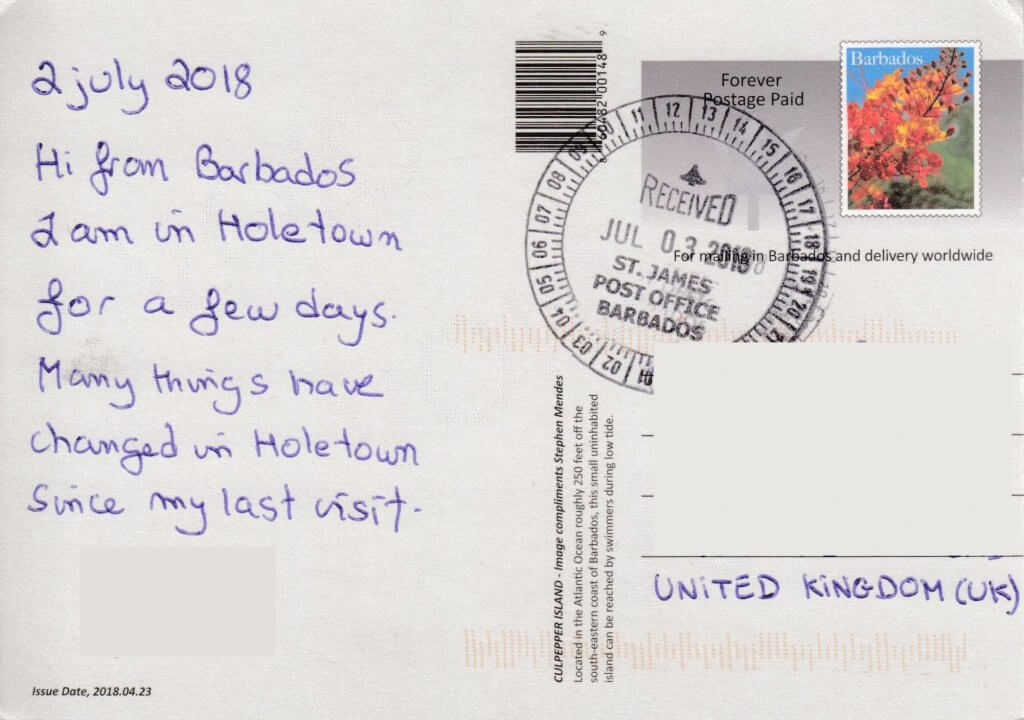 2 july 2018
Hi from Barbados
I am in Holetown
for a few days.
Many things have
changed in Holetown
Since my last visit.
Issue Date, 2018.04.23
8 60482 00148 9
CULPEPPER ISLAND - Image compliments Stephen Mendes
Located in the Atlantic Ocean roughly 250 feet off the
south-eastern coast of Barbados, this small uninhabited
island can be reached by swimmers during low tide.
Forever
Postage Paid
Barbados
For mailing in Barbados and delivery worldwide
01 02 03 04 05 06 07 08 09 10 11 12 13 14 15 16 17 18 19 20 21
RECEIVED
JUL 03 2018
ST. JAMES
POST OFFICE
BARBADOS
UNITED KINGDOM (UK)